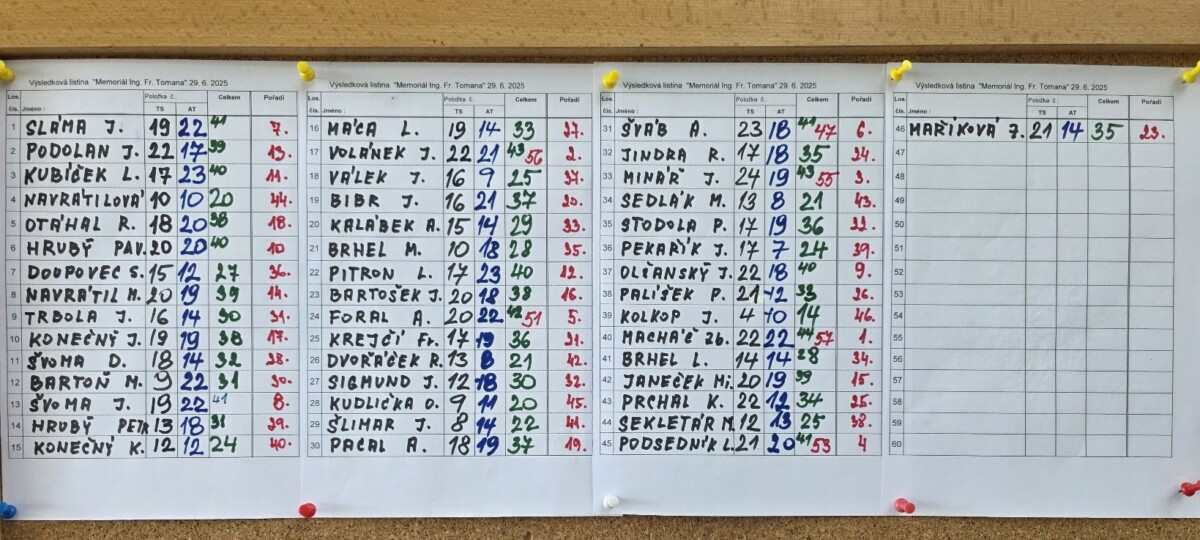 Výsledková listina "Memoriál Ing. Fr. Tomana" 29. 6. 2025
Los. Položka č. Celkem Pořadí
čís. Jméno : TS AT
1 SLÁMA J. 19 22 41 7.
2 PODOLAN J. 22 17 39 13.
3 KUBÍČEK L. 17 23 40 11.
4 NAVRÁTILOVÁ 10 10 20 44.
5 OTÁHAL R. 18 20 38 18.
6 HRUBÝ PAV. 20 20 40 10
7 DOUPOVEC S. 15 12 27 36.
8 NAVRÁTIL M. 20 19 39 14.
9 TRBOLA J. 16 14 30 31.
10 KONEČNÝ J. 19 19 38 17.
11 ŠVOMA D. 18 14 32 28.
12 BARTOŇ M. 9 22 31 30.
13 ŠVOMA J. 19 22 41 8.
14 HRUBÝ PETR 13 18 31 29.
15 KONEČNÝ K. 12 12 24 40.
Výsledková listina "Memoriál Ing. Fr. Tomana" 29. 6. 2025
Los. Položka č. Celkem Pořadí
čís. Jméno : TS AT
16 MÁCA L. 19 14 33 27.
17 VOLÁNEK J. 22 21 43 56 2.
18 VÁLEK J. 16 9 25 37.
19 BIBR J. 16 21 37 20.
20 KALÁBEK A. 15 14 29 33.
21 BRHEL M. 10 18 28 35.
22 PITRON L. 17 23 40 12.
23 BARTOŠEK J. 20 18 38 16.
24 FORAL A. 20 22 42 51 5.
25 KREJČÍ Fr. 17 19 36 21.
26 DVOŘÁČEK R. 13 8 21 42.
27 SIGMUND J. 12 18 30 32.
28 KUDLIČKA O. 9 11 20 45.
29 ŠLIMAR J. 8 14 22 41.
30 PACAL A. 18 19 37 19.
Výsledková listina "Memoriál Ing. Fr. Tomana" 29. 6. 2025
Los. Položka č. Celkem Pořadí
čís. Jméno : TS AT
31 ŠVÁB A. 23 18 41 47 6.
32 JINDRA R. 17 18 35 24.
33 MINÁŘ J. 24 19 43 55 3.
34 SEDLÁK M. 13 8 21 43.
35 STODOLA P. 17 19 36 22.
36 PEKAŘÍK J. 17 7 24 39.
37 OLŠANSKÝ J. 22 18 40 9.
38 PALIŠEK P. 21 12 33 26.
39 KOLKOP J. 4 10 14 46.
40 MACHÁČ Zb. 22 22 44 57 1.
41 BRHEL L. 14 14 28 34.
42 JANEČEK Mi. 20 19 39 15.
43 PRCHAL K. 22 12 34 25.
44 SEKLETÁR M. 12 13 25 38.
45 PODSEDNÍK L. 21 20 41 53 4
Výsledková listina "Memoriál Ing. Fr. Tomana" 29. 6. 2025
Los. Položka č. Celkem Pořadí
čís. Jméno : TS AT
46 MAŘÍKOVÁ J. 21 14 35 23.
47
48
49
50
51
52
53
54
55
56
57
58
59
60